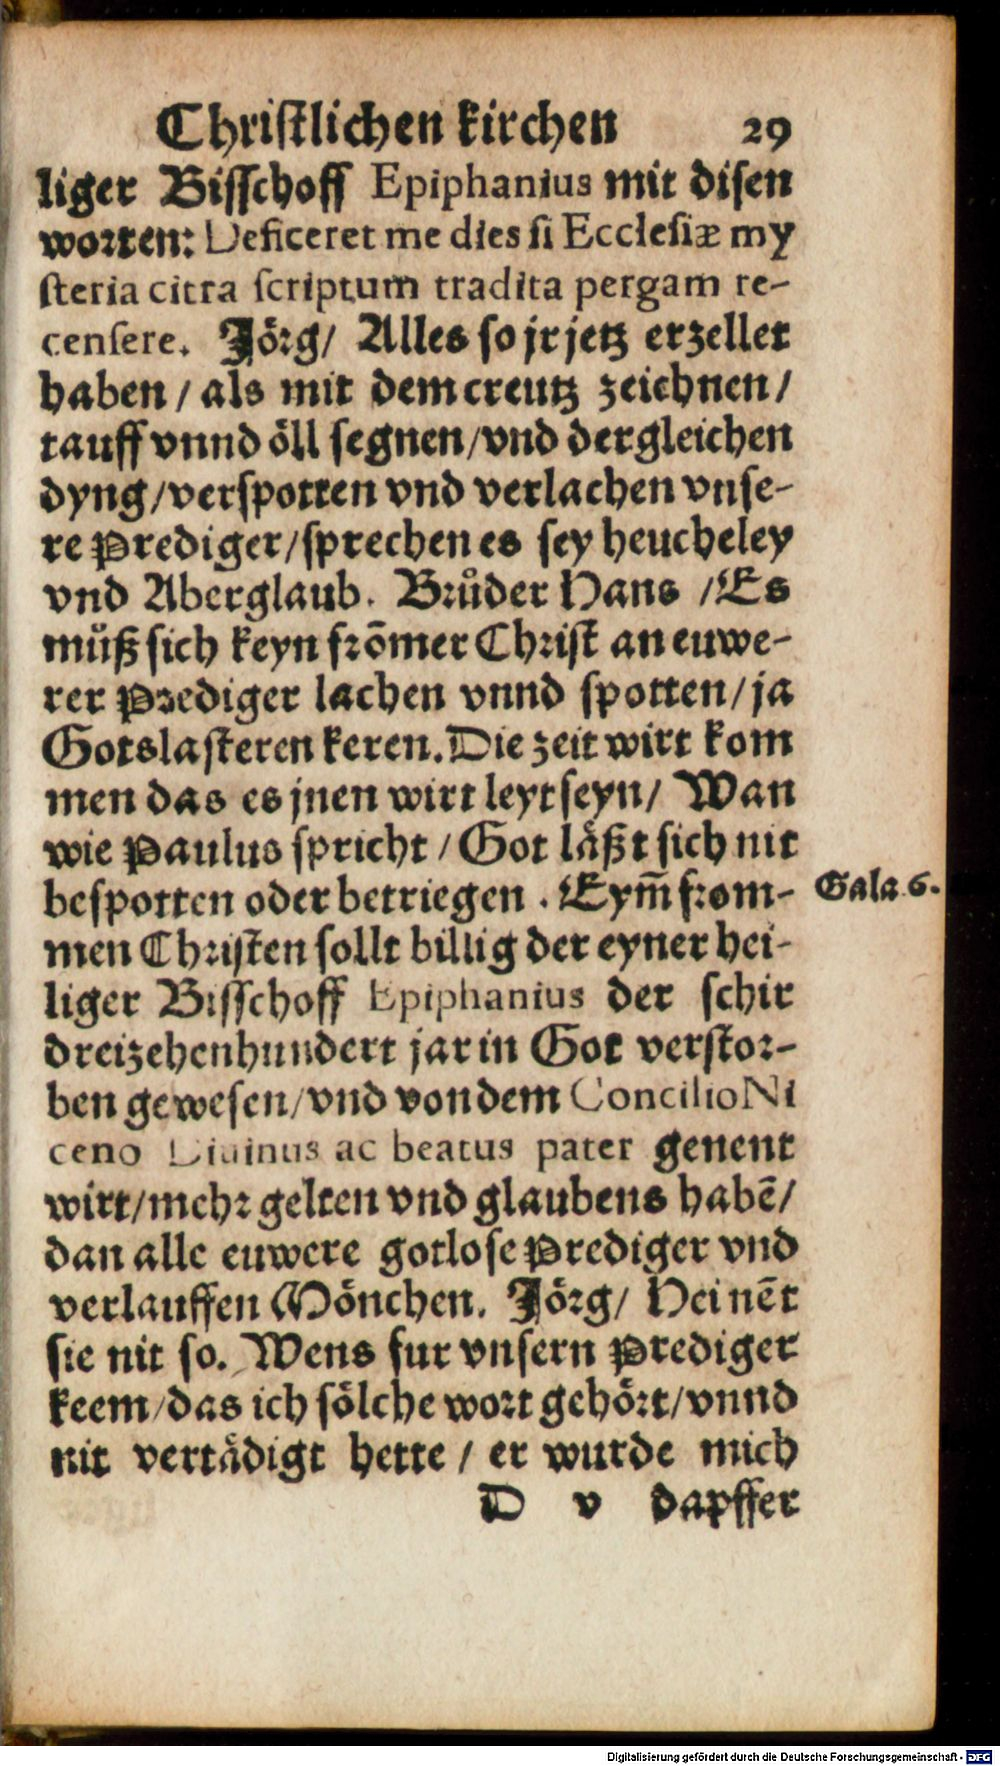 Christlichen kirchen 29
liger Bisschoff Epiphanius mit disen
worten: Deficeret me dies si Ecclesiæ my
steria citra scriptum tradita pergam re-
censere. Jörg/ Alles so jr jetz erzellet
haben / als mit dem creutz zeichnen/
tauff vnnd öll segnen/vnd dergleichen
dyng/verspotten vnd verlachen vnse-
re Prediger/sprechen es sey heucheley
vnd Aberglaub. Brůder Hans /Es
můß sich keyn frõmer Christ an euwe-
rer Prediger lachen vnnd spotten/ja
Gotslasteren keren. Die zeit wirt kom
men das es jnen wirt leyt seyn/ Wan
wie Paulus spricht / Got läßt sich nit
bespotten oder betriegen . Eym̃ from-
Gala 6.
men Christen sollt billig der eyner hei-
liger Bisschoff Epiphanius der schir
dreizehenhundert jar in Got verstor-
ben gewesen/vnd von dem Concilio Ni
ceno Diuinus ac beatus pater genent
wirt/mehr gelten vnd glaubens habẽ/
dan alle euwere gotlose Prediger vnd
verlauffen Mönchen. Jörg/ Hei nẽt
sie nit so. Wens fur vnsern Prediger
keem/das ich sölche wort gehört/vnnd
nit vertädigt hette / er wurde mich
D v dapffer
Digitalisierung gefördert durch die Deutsche Forschungsgemeinschaft - DFG